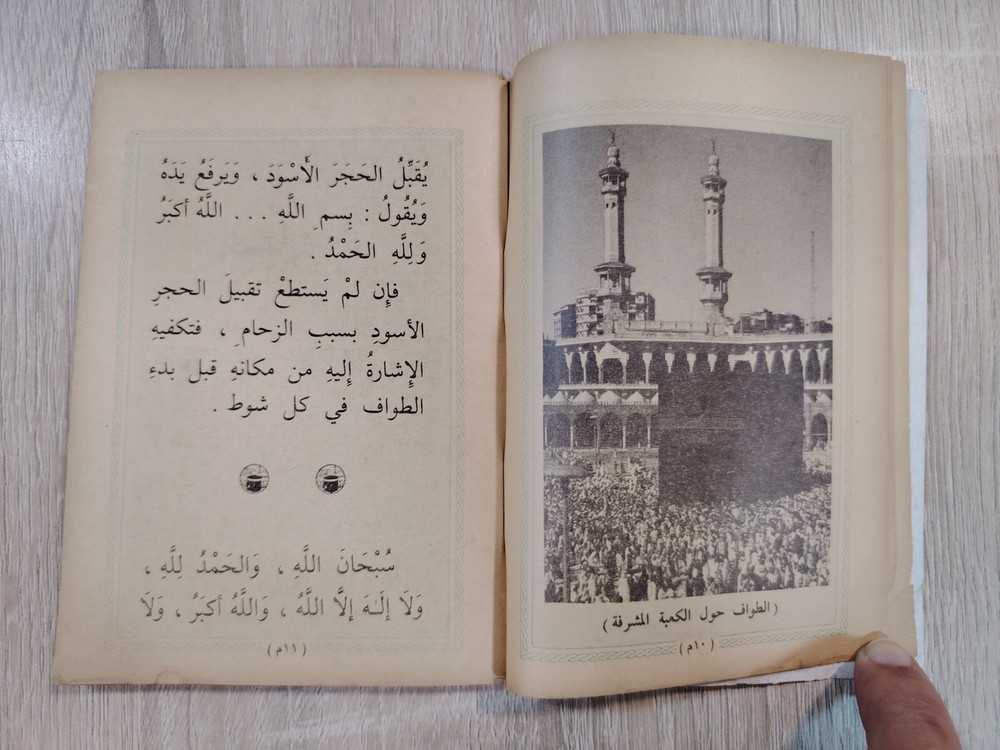 ( الطواف حول الكعبة المشرفة )
( ١٠م )
يُقَبِّلُ الحَجَرَ الأَسْوَدَ ، وَيَرفَعُ يَدَهُ
وَيُقُولُ : بِسمِ اللَّهِ ... اللَّهُ أكبَرُ
وَلِلَّهِ الحَمْدُ .
فإِن لمْ يَستطعْ تقبيلَ الحجرِ
الأسودِ بسببِ الزحامِ ، فتكفيهِ
الإِشارةُ إِليهِ من مكانهِ قبل بدءِ
الطواف في كل شوط .
سُبْحَانَ اللَّهِ ، وَالحَمْدُ لِلَّهِ ،
وَلَا إلَـٰهَ إلَّا اللَّهُ ، وَاللَّهُ أكبَرُ ، وَلَا
( ١١م )